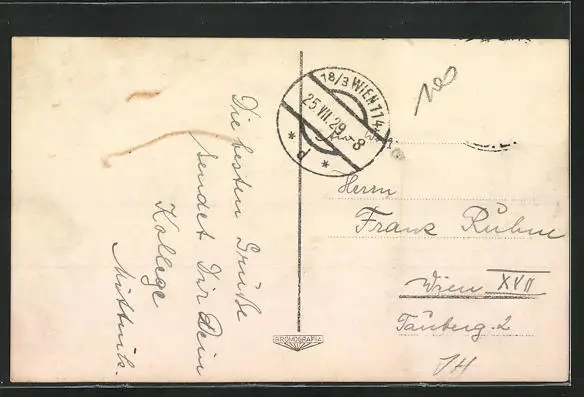 Die besten Grüße
sendet Dir Dein
Kollege
18/3 WIEN 114
25 VII 29 - 8
P
Herrn
Franz
Wien XVII
Tauberg. 2
BROMOGRAFIA